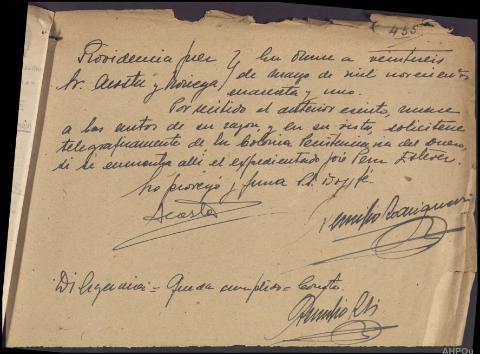 455
Providencia Juez En Orense a veintiseis
Sr. Acosta y Noriega y de mayo de mil novecientos
cuarenta y uno.
Por recibido el anterior escrito, unase
a los autos de su razon, y en su vista, solicitese
telegraficamente de la Colonia Penitenciaria del Dueso,
si se encuentra alli el expedientado José Pena Estévez.
Lo proveyó y firma S.S. Doy fé.
Acosta
Diligencia = Queda cumplido = Conste.
AHPOu